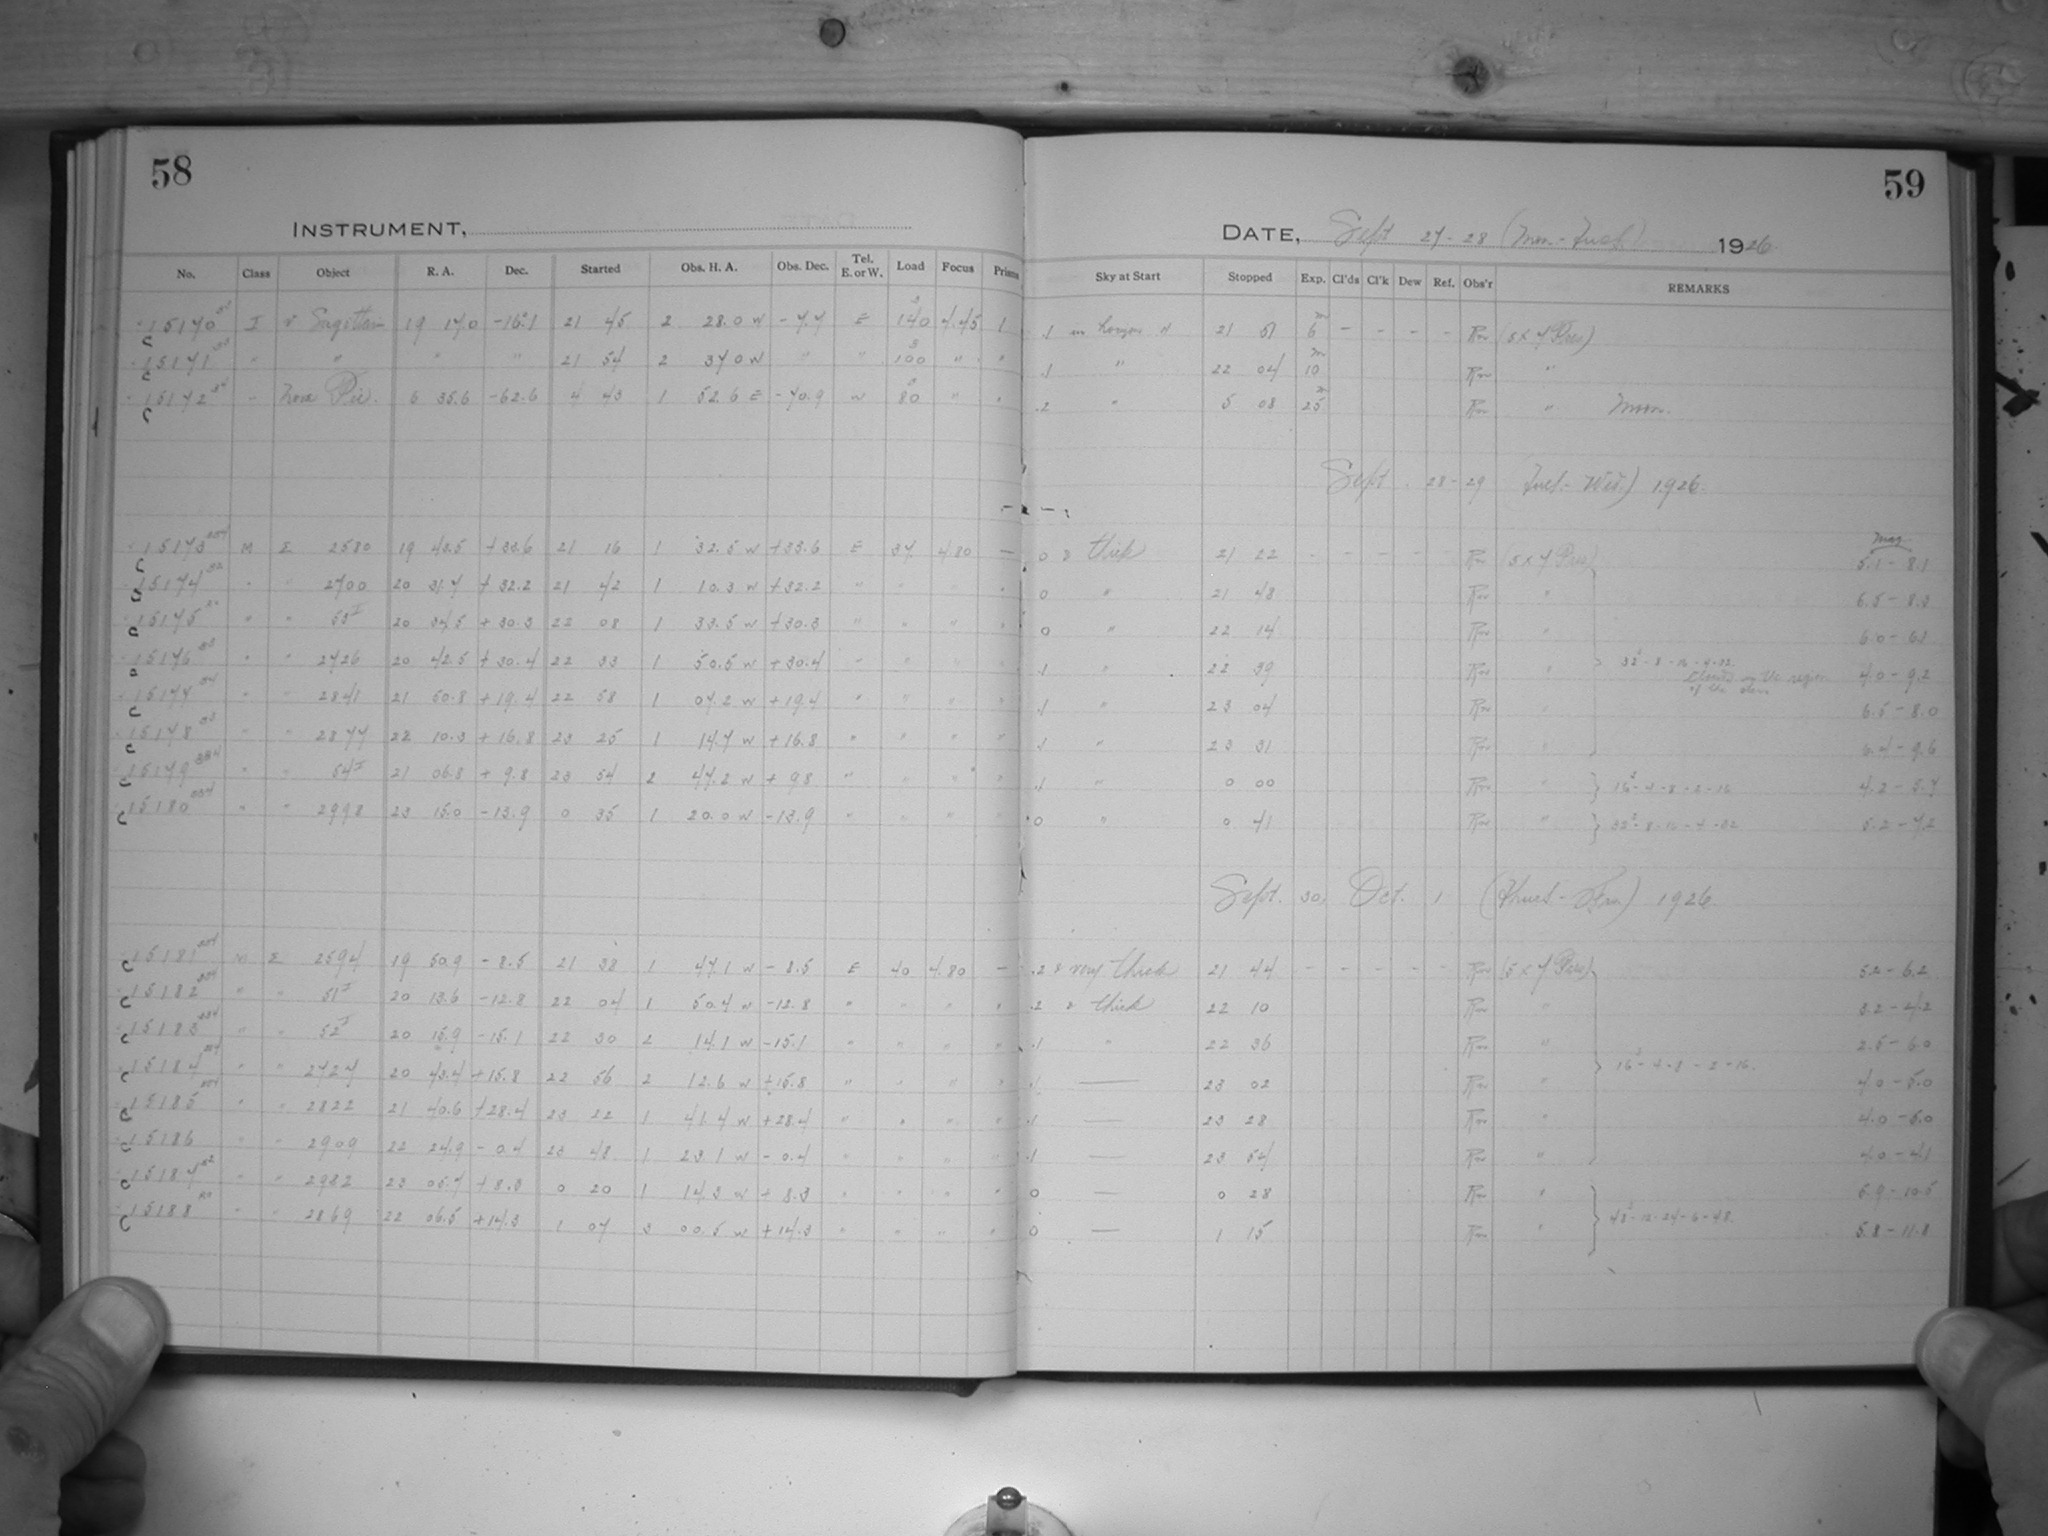 58
INSTRUMENT,
No. Class Object R. A. Dec. Started Obs. H. A. Obs. Dec. Tel. E. or W. Load Focus Prisms
15170 I v Sagittarii 19 17.0 -16.1 21 45 2 28.0 W -7.7 E 140 4.45 1
15171 " " " " 21 54 2 37.0 W " " 100 " "
15172 " Nova Pic. 6 35.6 -62.6 4 43 1 52.6 E -70.9 W 80 " "
15173 M Σ 2580 19 42.5 +33.6 21 16 1 32.5 W +33.6 E 37 4.80 —
15174 " " 2700 20 31.7 +32.2 21 42 1 10.3 W +32.2 " " " "
15175 " " 53 I 20 34.5 +30.3 22 08 1 33.5 W +30.3 " " " "
15176 " " 2726 20 42.5 +30.4 22 33 1 50.5 W +30.4 " " " "
15177 " " 2841 21 50.8 +19.4 22 58 1 07.2 W +19.4 " " " "
15178 " " 2877 22 10.3 +16.8 23 25 1 14.7 W +16.8 " " " "
15179 " " 54 I 21 06.8 +9.8 23 54 2 47.2 W +9.8 " " " "
15180 " " 2998 23 15.0 -13.9 0 35 1 20.0 W -13.9 " " " "
15181 M Σ 2594 19 50.9 -8.5 21 38 1 47.1 W -8.5 E 40 4.80 —
15182 " " 51 I 20 13.6 -12.8 22 04 1 50.7 W -12.8 " " " "
15183 " " 52 I 20 15.9 -15.1 22 30 2 14.1 W -15.1 " " " "
15184 " " 2727 20 43.4 +15.8 22 56 2 12.6 W +15.8 " " " "
15185 " " 2822 21 40.6 +28.4 23 22 1 41.4 W +28.4 " " " "
15186 " " 2909 22 24.9 -0.4 23 48 1 23.1 W -0.4 " " " "
15187 " " 2982 23 05.7 +8.3 0 20 1 14.3 W +8.3 " " " "
15188 " " 2869 22 06.5 +14.3 1 07 3 00.5 W +14.3 " " " "
59
DATE, Sept 27-28 (Mon.-Tues.) 1926
Sky at Start Stopped Exp. Cl'ds Cl'k Dew Ref. Obs'r REMARKS
.1 21 51 6 m - - - - (5 x 7 Pres)
.1 " 22 04 10 m "
.2 " 5 08 25 m " Moon.
Sept. 28-29 Tues.-Wed.) 1926.
Mag
0 & thick 21 22 - - - - - (5 x 7 Pres) 5.1 - 8.1
0 " 21 48 " 6.5 - 8.3
0 " 22 14 " 6.0 - 6.1
.1 " 22 39 " 32s-8-16-4-32. 4.0 - 9.2
Clouds in the region
of the stars
.1 " 23 04 " 6.5 - 8.0
.1 " 23 31 " 6.4 - 9.6
.1 " 0 00 " 16s-4-8-2-16 4.2 - 5.7
0 " 0 41 " 32s-8-16-4-32 5.2 - 7.2
Sept. 30, Oct. 1 1926.
.2 & very thick 21 44 - - - - - (5 x 7 Pres) 5.2 - 6.2
.2 & thick 22 10 " 3.2 - 4.2
.1 " 22 36 " 2.5 - 6.0
.1 — 23 02 " 16s-4-8-2-16. 4.0 - 5.0
.1 — 23 28 " 4.0 - 5.0
.1 — 23 54 " 4.0 - 4.1
0 — 0 28 " 5.9 - 10.5
48s-12-24-6-48.
0 — 1 15 " 5.8 - 11.8